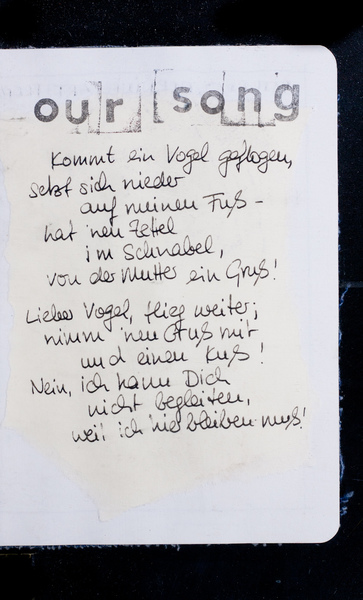 our song
Kommt ein Vogel geflogen,
setzt sich nieder
auf meinen Fuß -
hat 'nen Zettel
im Schnabel,
von der Mutter ein Gruß!
Lieber Vogel, flieg weiter;
nimm 'nen Gruß mit
und einen Kuß!
Nein, ich kann Dich
nicht begleiten,
weil ich hie bleiben muß!